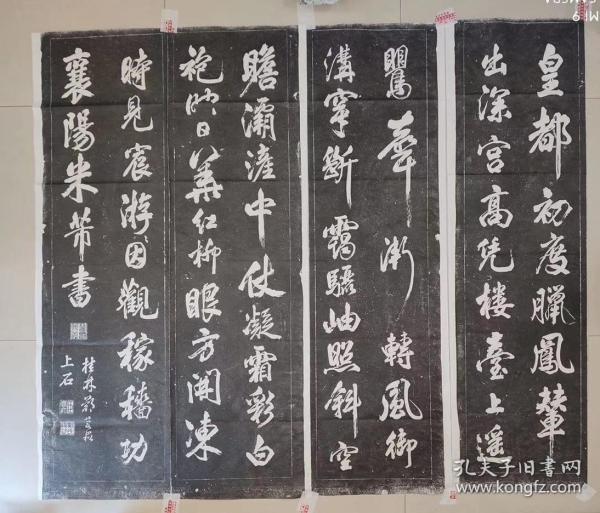 皇都初度臘鳳輦
出深宮高凭樓臺上遥
鸎聲漸轉風御
溝穿斷靄驪岫照斜空
瞻灞滻中仗凝霜彩白
袍映日華紅柳眼方開凍
時見宸游因觀稼穡功
襄陽米芾書
桂林
上石
孔夫子旧书网
www.kongfz.com